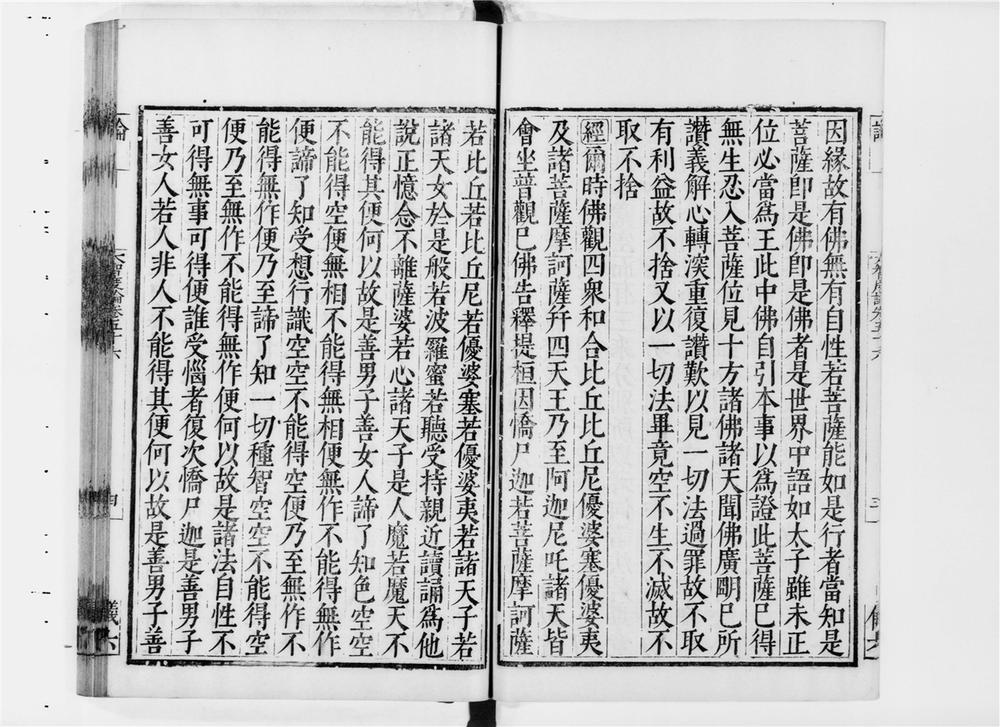 因緣故有佛無有自性若菩薩能如是行者當知是
菩薩卽是佛卽是佛者是世界中語如太子雖未正
位必當爲王此中佛自引本事以爲證此菩薩已得
無生忍入菩薩位見十方諸佛諸天聞佛廣明已所
讚義解心轉深重復讚歎以見一切法過罪故不取
有利益故不捨又以一切法畢竟空不生不滅故不
取不捨
經爾時佛觀四衆和合比丘比丘尼優婆塞優婆夷
及諸菩薩摩訶薩幷四天王乃至阿迦尼吒諸天皆
會坐普觀已佛告釋提桓因憍尸迦若菩薩摩訶薩
若比丘若比丘尼若優婆塞若優婆夷若諸天子若
諸天女於是般若波羅蜜若聽受持親近讀誦爲他
說正憶念不離薩婆若心諸天子是人魔若魔天不
能得其便何以故是善男子善女人諦了知色空空
不能得空便無相不能得無相便無作不能得無作
便諦了知受想行識空空不能得空便乃至無作不
能得無作便乃至諦了知一切種智空空不能得空
便乃至無作不能得無作便何以故是諸法自性不
可得無事可得便誰受惱者復次憍尸迦是善男子
善女人若人非人不能得其便何以故是善男子善
論
大智度論卷五十六
四
儀六